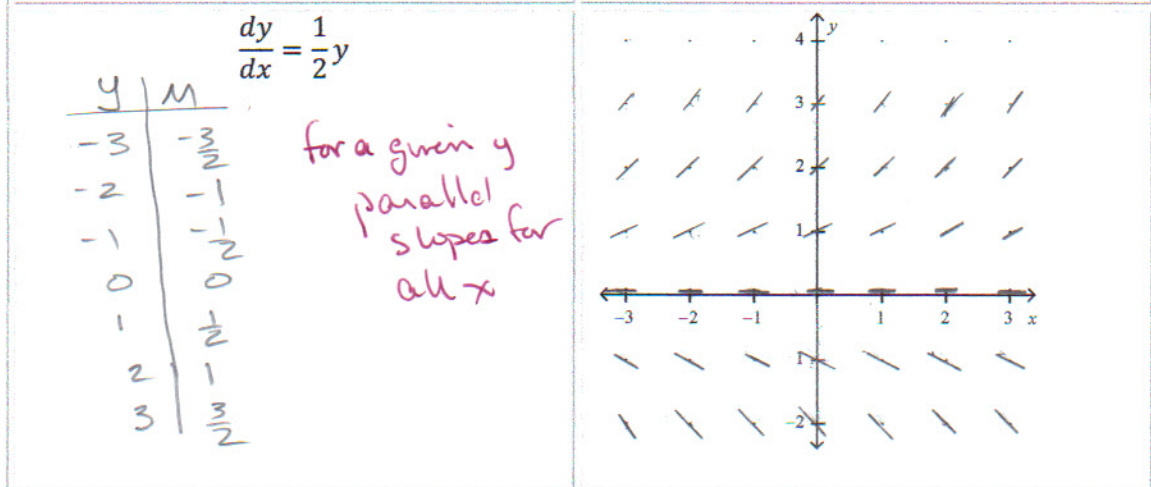 dy/dx = 1/2 y
y | M
-3 | -3/2
-2 | -1
-1 | -1/2
0 | 0
1 | 1/2
2 | 1
3 | 3/2
for a given y
parallel
slopes for
all x
y
4
3
2
1
-3 -2 -1 1 2 3 x
1
-2